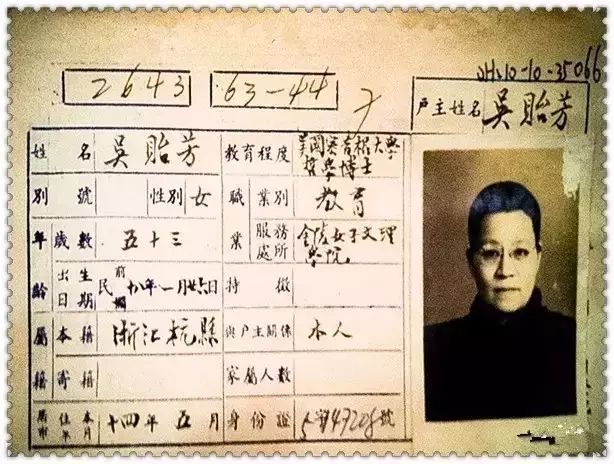 2643 63-44 JH10-10-35066
戶主姓名 吳貽芳
姓名 吳貽芳 教育程度 美國密西根大學哲學博士
別號 性別 女 職業 業別 教育
年齡 歲數 五十三 服務處所 金陵女子文理學院
出生日期 民前 十八年一月廿六日 特徵
屬籍 本籍 浙江杭縣 與戶主關係 本人
寄籍 家屬人數
十四年五月 身份證 47208號